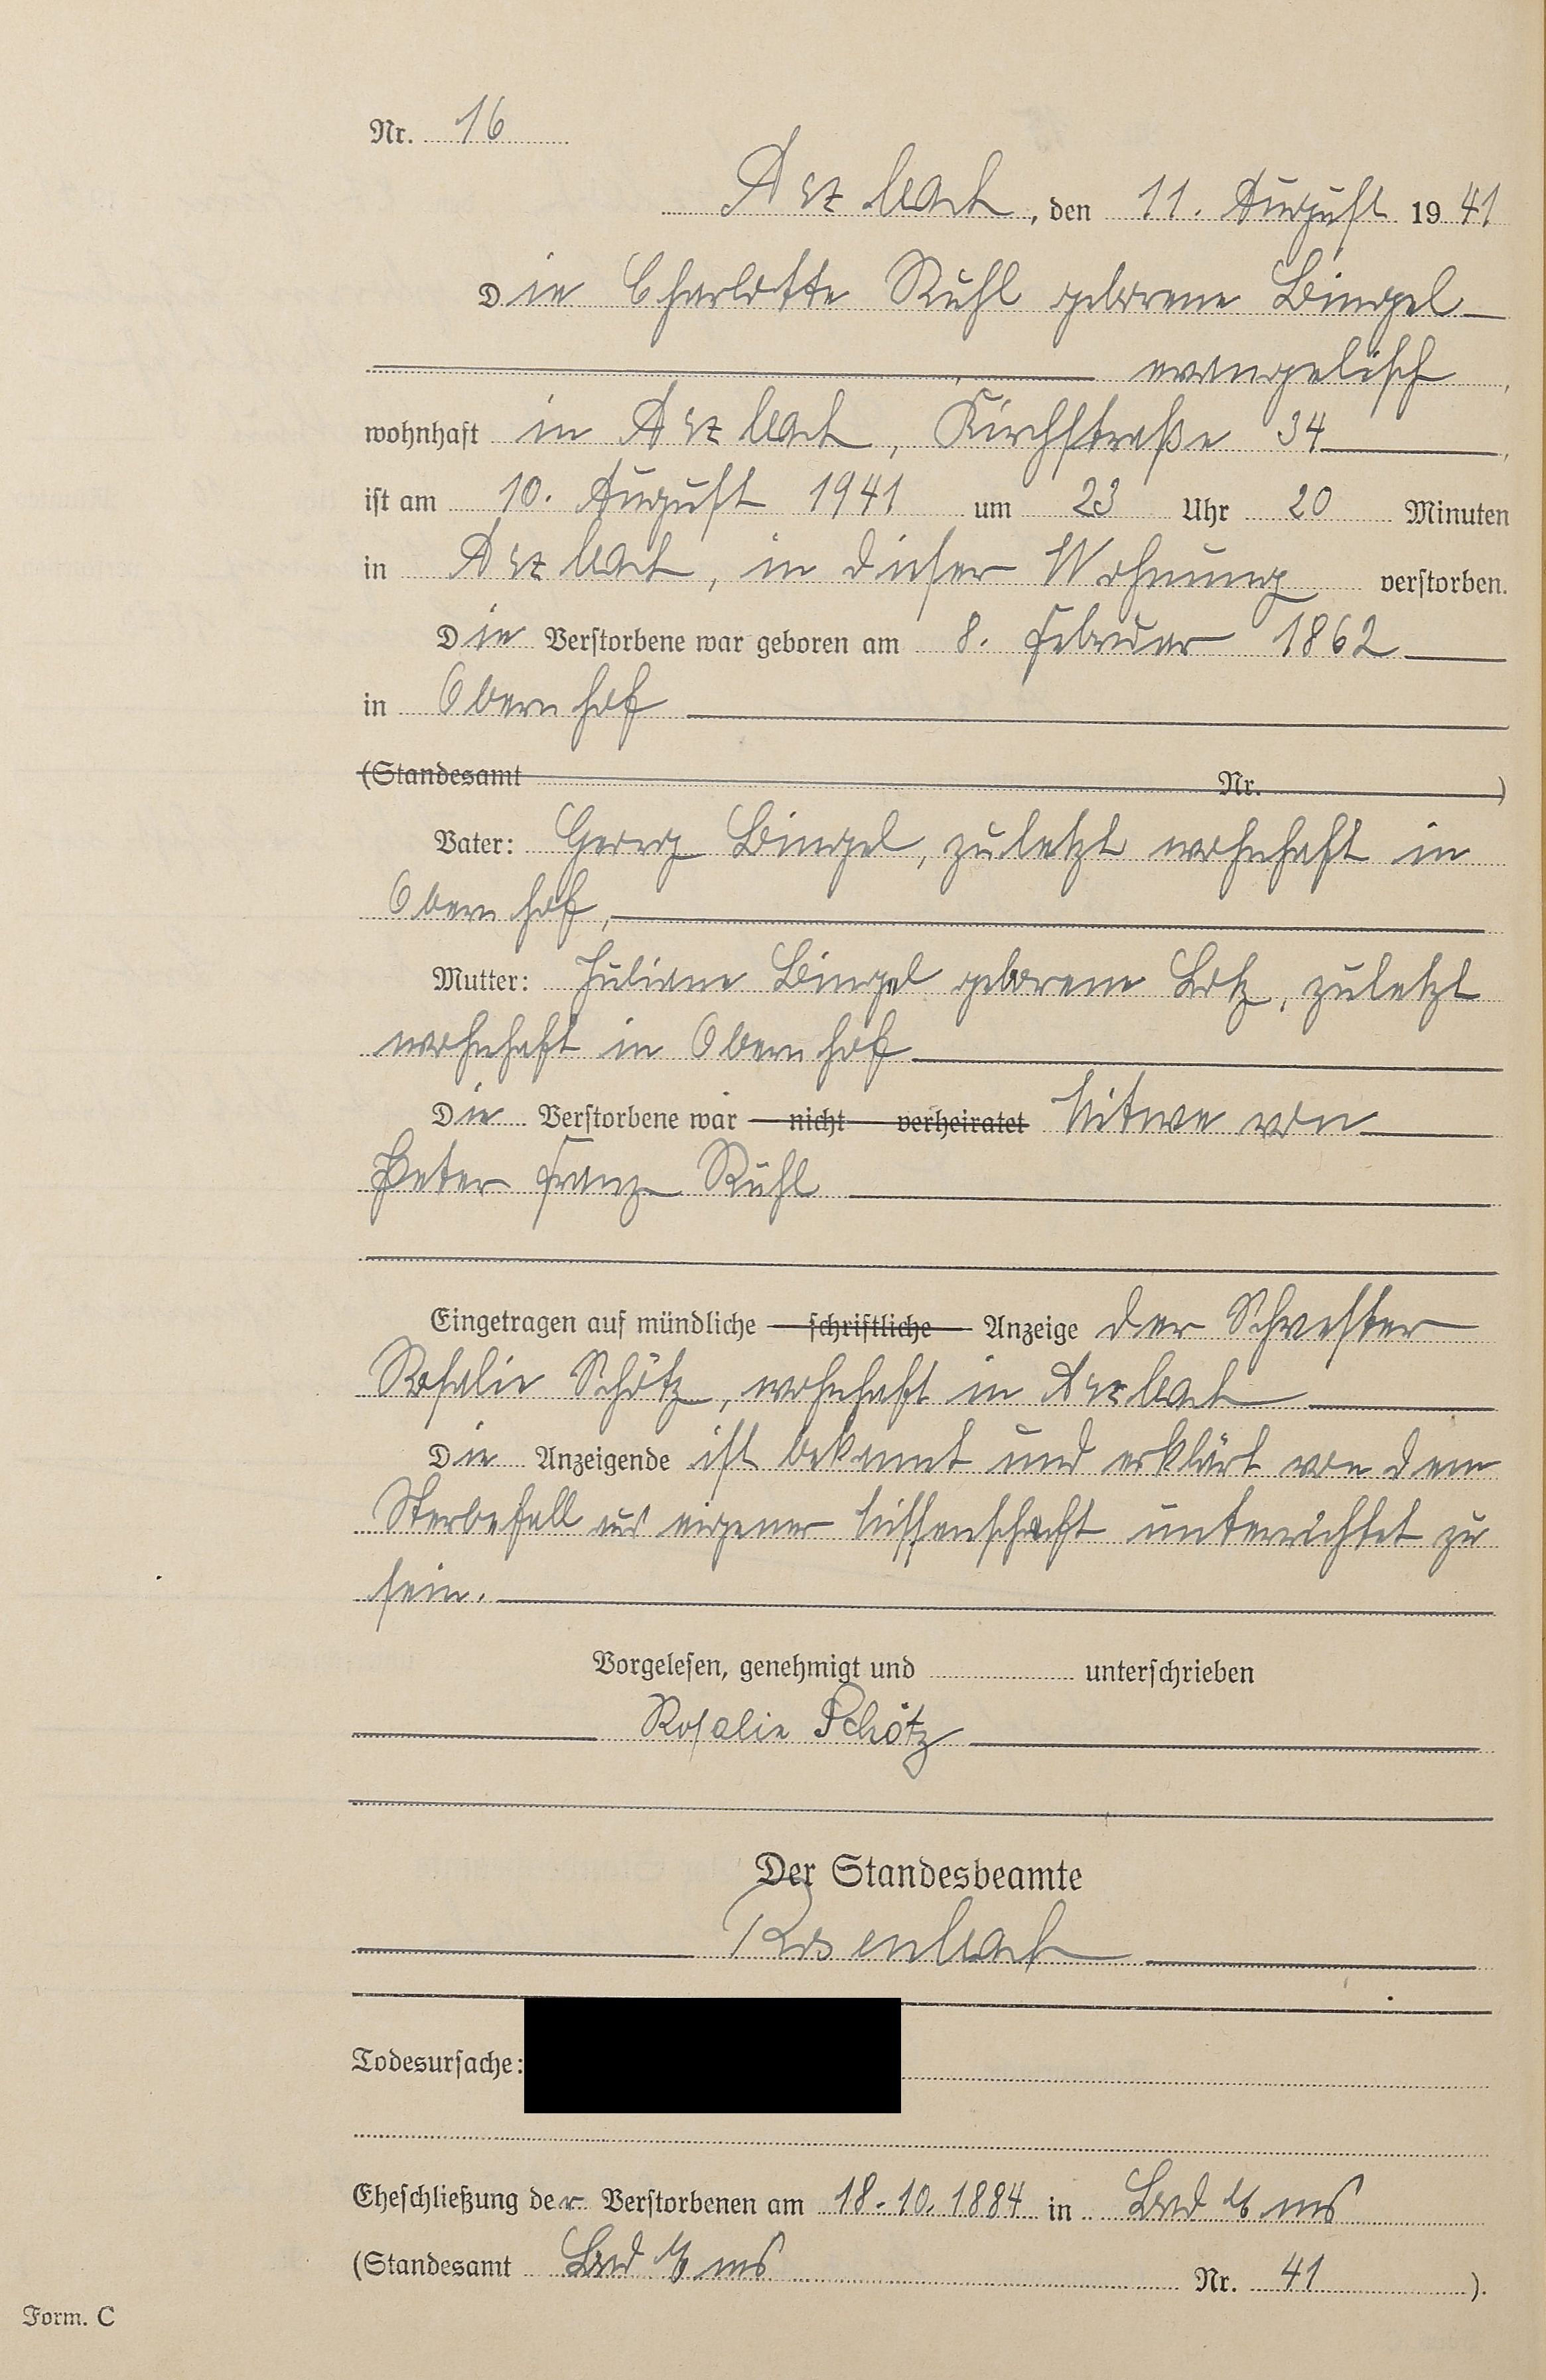 Nr. 16
Arzbach, den 11. August 1941
Die Charlotte Ruhl geborene Bingel
evangelisch,
wohnhaft in Arzbach, Kirchstraße 34,
ist am 10. August 1941 um 23 Uhr 20 Minuten
in Arzbach, in dieser Wohnung verstorben.
Die Verstorbene war geboren am 8. Februar 1862
in Obernhof
(Standesamt Nr. )
Vater: Georg Bingel, zuletzt wohnhaft in
Obernhof,
Mutter: Juliane Bingel geborene Lotz, zuletzt
wohnhaft in Obernhof
Die Verstorbene war nicht verheiratet Witwe von
Peter Franz Ruhl
Eingetragen auf mündliche schriftliche Anzeige der Schwester
Rosalie Schötz, wohnhaft in Arzbach
Die Anzeigende ist bekannt und erklärt von dem
Sterbefall aus eigener Wissenschaft unterrichtet zu
sein.
Vorgelesen, genehmigt und unterschrieben
Rosalie Schötz
Der Standesbeamte
Rosenbach
Todesursache:
Eheschließung der Verstorbenen am 18.10.1884 in Bad Ems
(Standesamt Bad Ems Nr. 41 ).
Form. C